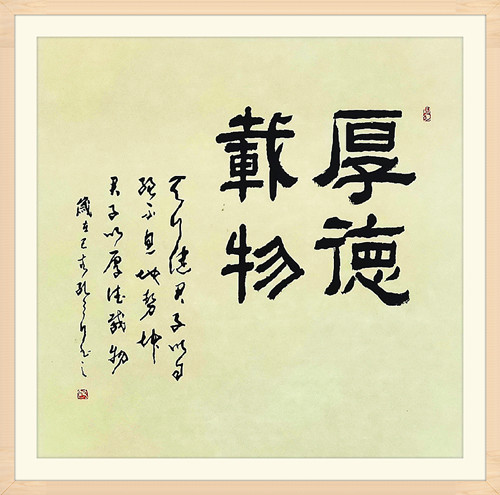 厚德
載物
天行健君子以自
强不息地勢坤
君子以厚德載物
歲在己亥孔